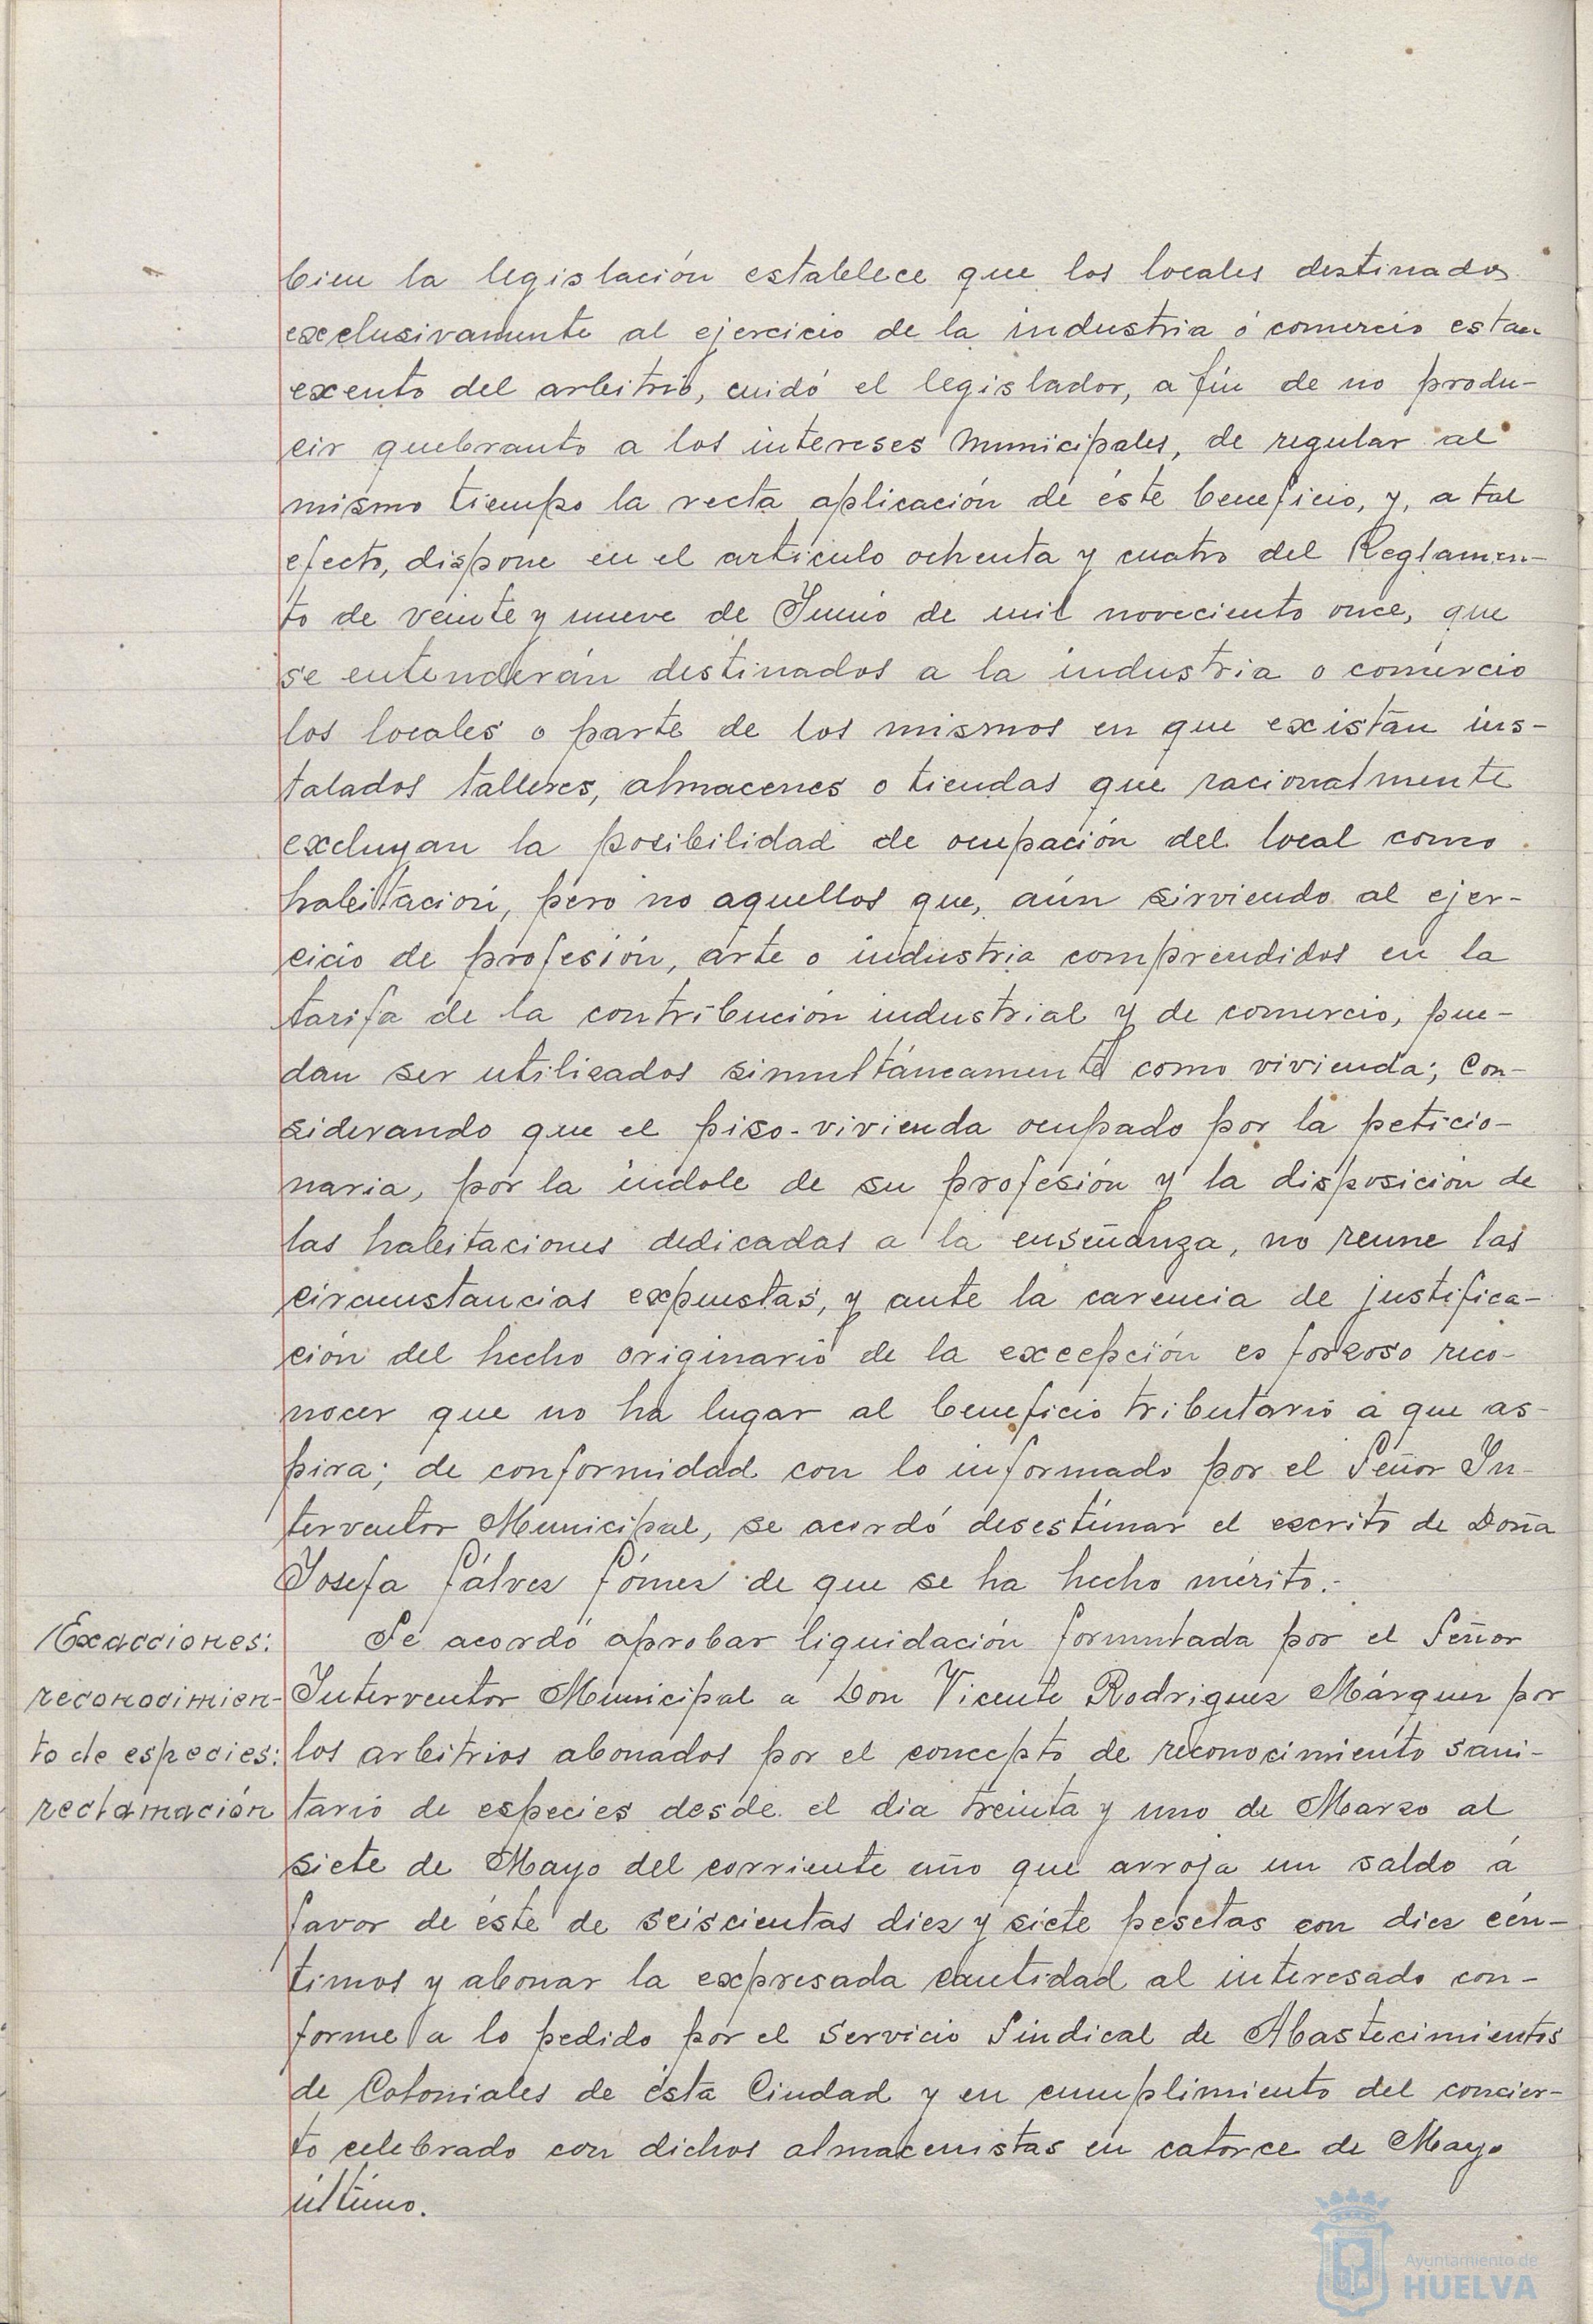 bien la legislación establece que los locales destinados
exclusivamente al ejercicio de la industria ó comercio estan
exento del arbitrio, cuidó el legislador, a fin de no produ-
cir quebranto a los intereses Municipales, de regular al
mismo tiempo la recta aplicación de éste beneficio, y, a tal
efecto, dispone en el articulo ochenta y cuatro del Reglamen-
to de veinte y nueve de Junio de mil noveciento once, que
se entenderán destinados a la industria o comercio
los locales o parte de los mismos en que existan ins-
talados talleres, almacenes o tiendas que racionalmente
excluyan la posibilidad de ocupación del local como
habitación, pero no aquellos que, aún sirviendo al ejer-
cicio de profesión, arte o industria comprendidos en la
tarifa de la contribución industrial y de comercio, pue-
dan ser utilizados simultáneamente como vivienda; Con-
siderando que el piso-vivienda ocupado por la peticio-
naria, por la indole de su profesión y la disposición de
las habitaciones dedicadas a la enseñanza, no reune las
circunstancias expuestas, y ante la carencia de justifica-
ción del hecho originario de la excepción es forzoso reco-
nocer que no ha lugar al beneficio tributario a que as-
pira; de conformidad con lo informado por el Señor In-
terventor Municipal, se acordó desestimar el escrito de Doña
Josefa Gálvez Gómez de que se ha hecho mérito.-
Exacciones:
reconocimien-
to de especies:
reclamación
Se acordó aprobar liquidación formulada por el Señor
Interventor Municipal a Don Vicente Rodriguez Márquez por
los arbitrios abonados por el concepto de reconocimiento sani-
tario de especies desde el dia treinta y uno de Marzo al
siete de Mayo del corriente año que arroja un saldo á
favor de éste de seiscientas diez y siete pesetas con diez cén-
timos y abonar la expresada cantidad al interesado con-
forme a lo pedido por el Servicio Sindical de Abastecimientos
de Coloniales de ésta Ciudad y en cumplimiento del concier-
to celebrado con dichos almacenistas en catorce de Mayo
último.
Ayuntamiento de
HUELVA